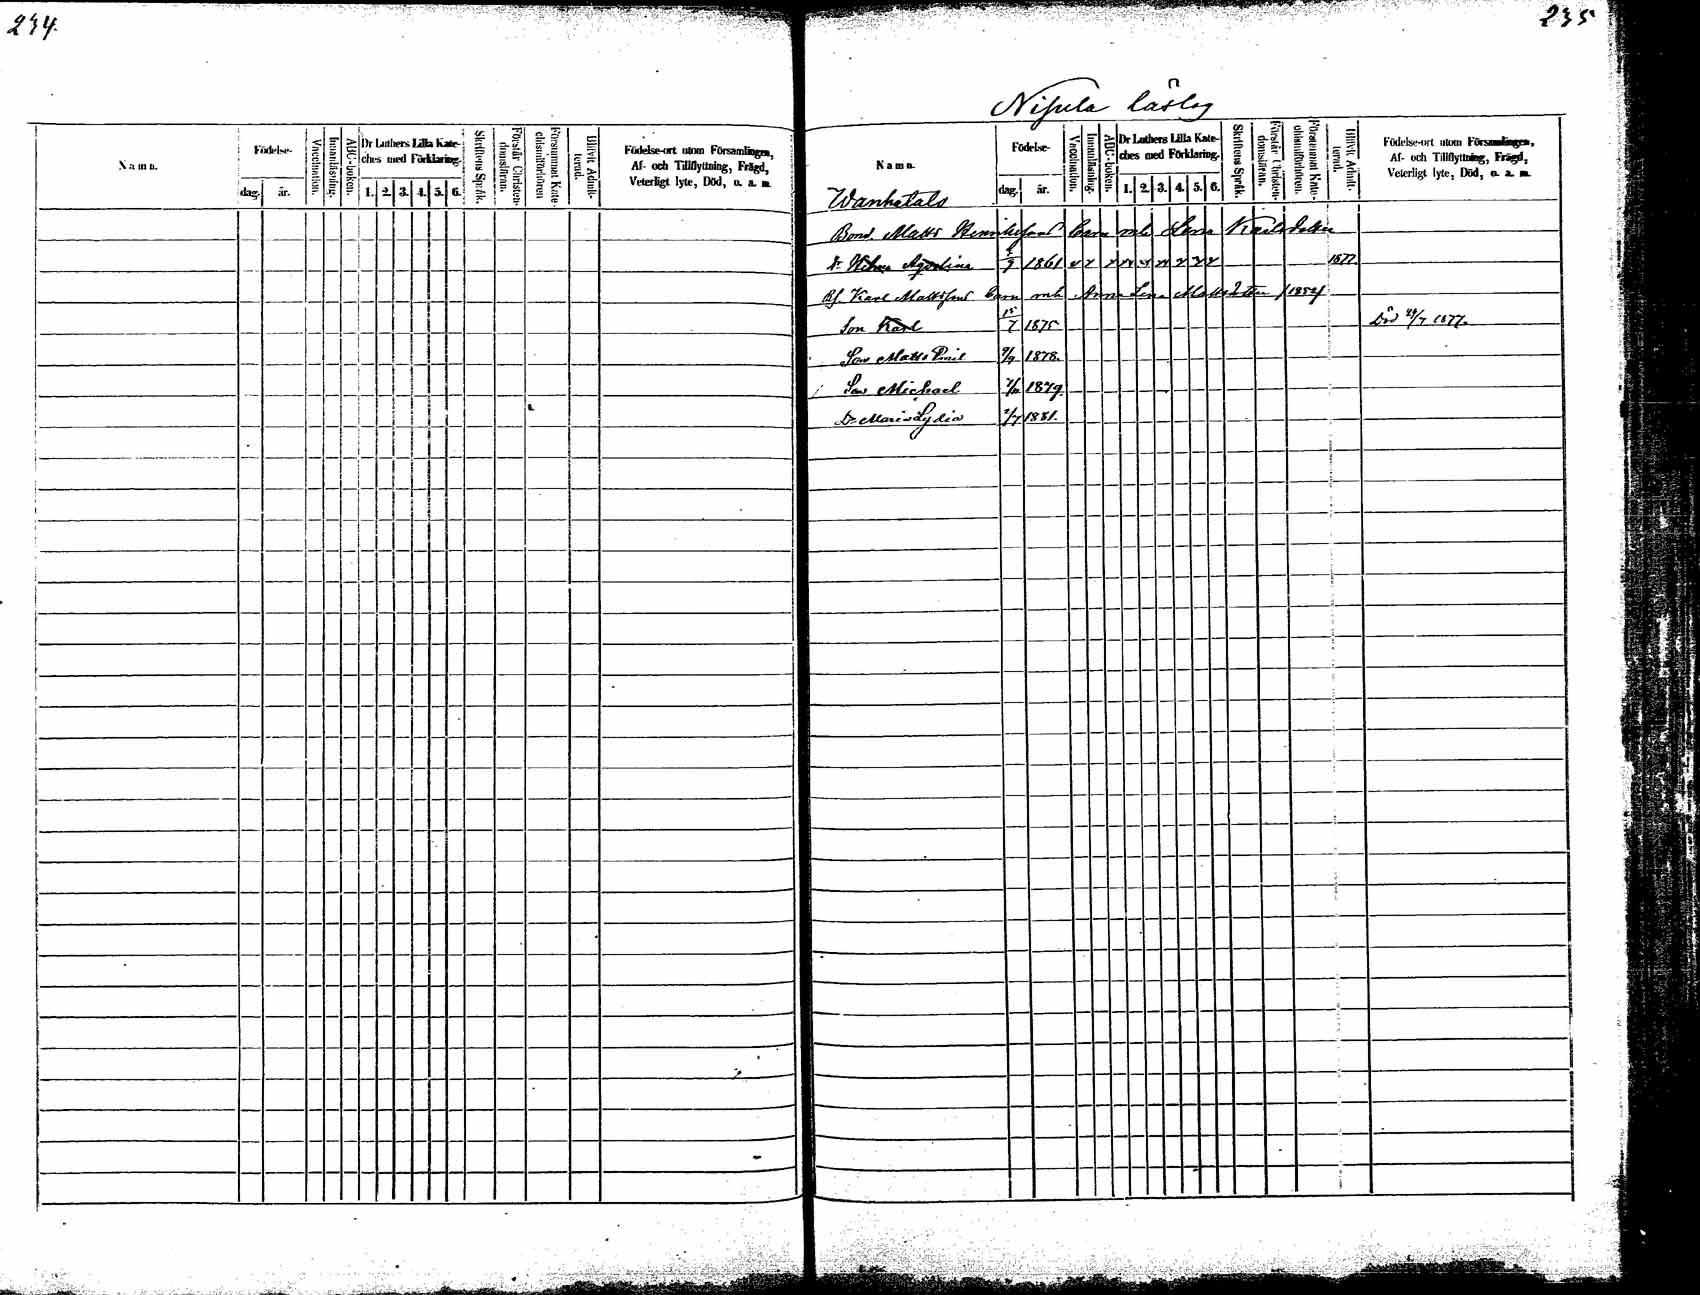 234.
Namn.
Födelse-
dag.
år.
Vaccination.
Innanläsning.
ABC-boken.
Dr Luthers Lilla Kate-
ches med Förklaring.
1. 2. 3. 4. 5. 6.
Skriftens Språk.
Förstår Christen-
domsläran.
Försummat Kate-
chismiförhören
Blifvit Admit-
terad.
Födelse-ort utom Församlingen,
Af- och Tillflyttning, Frägd,
Veterligt lyte, Död, u. a. m.
235
Nisula läslag
Namn.
Födelse-
dag.
år.
Vaccination.
Innanläsning.
ABC-boken.
Dr Luthers Lilla Kate-
ches med Förklaring.
1. 2. 3. 4. 5. 6.
Skriftens Språk.
Förstår Christen-
domsläran.
Försummat Kate-
chismiförhören.
Blifvit Admit-
terad.
Födelse-ort utom Församlingen,
Af- och Tillflyttning, Frägd,
Veterligt lyte, Död, u. a. m.
Wanhatalo
Bond. Matts Henriksson's Barn mh Lena Karlsdotter
Dr 9 1861 1877
Karl Mattsson's Barn mh Anna Lena Mattsdotter /1852/
Son Karl 15/7 1875 Död 29/7 1877.
Son Matts Emil 9/9 1878.
Son Michael 1879.
Dr Maria Lydia 2/7 1881.